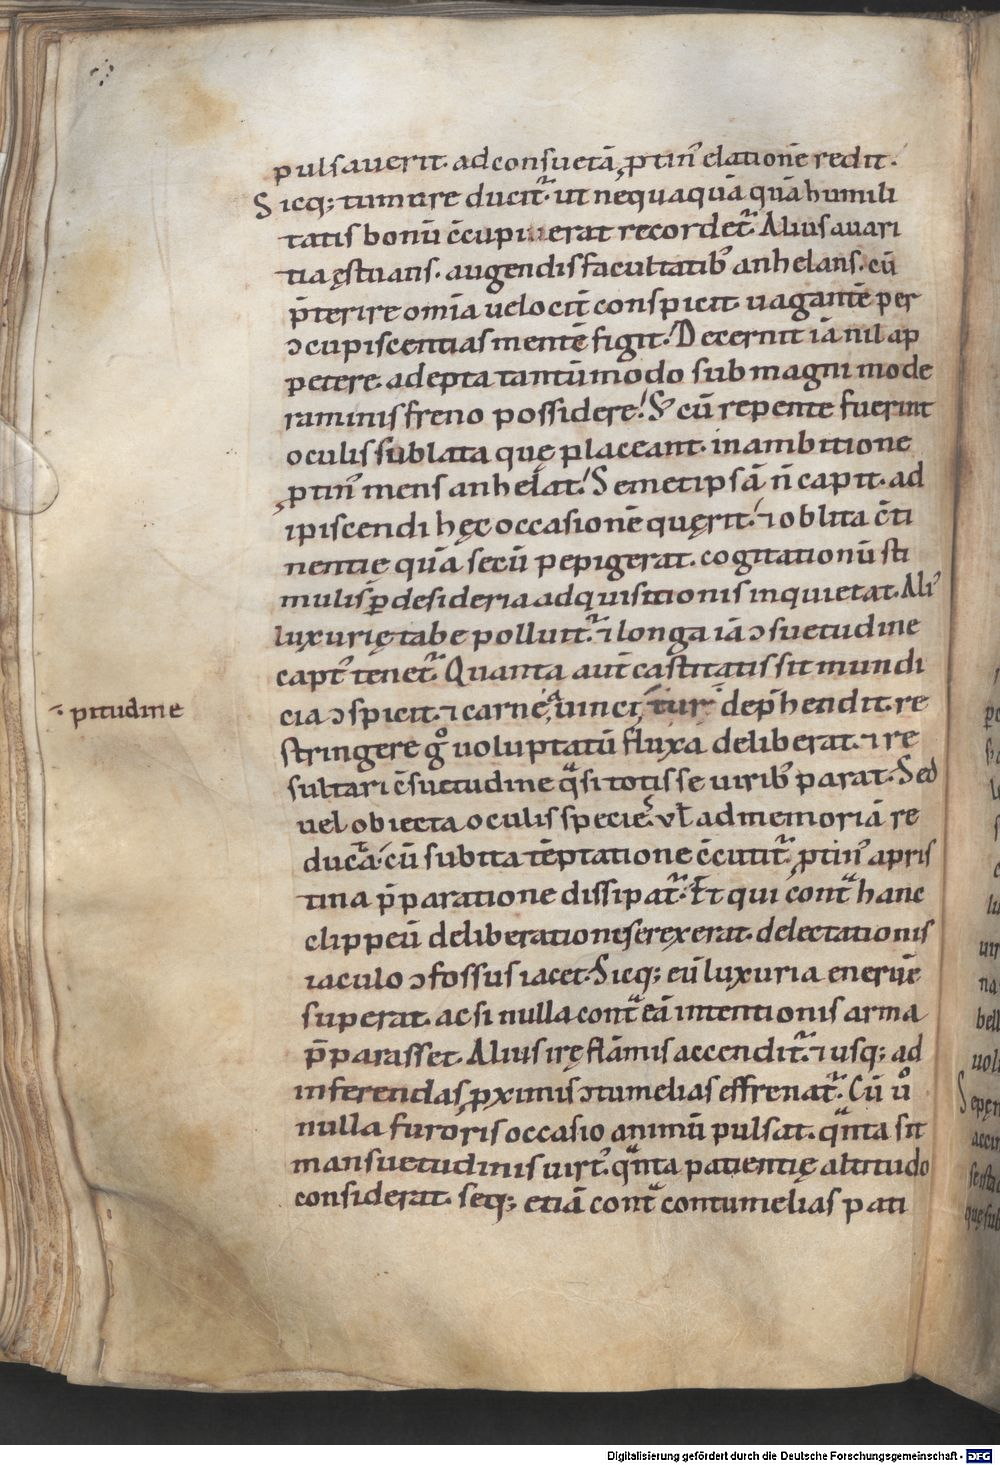 pulsauerit. adconsuetā, ꝓtin᾽ elationē redit.
Sicq; tumore ducit᷑. ut nequaquā quā humili
tatis bonū c̄cupiuerat recordet᷑. Alius auari
tia ęstuans. augendis facultatib᾽ anhelans. cū
p̄terire omīa uelocit̄ conspicit. uagantē per
ↄcupiscentias mentē figit. Decernit iā nil ap
petere. adepta tantūmodo sub magni mode
raminis freno possidere. & cū repente fuerint
oculis sublata quę placeant. in ambitione
ꝓtin᾽ mens anhelat. Semetipsā ñ capit. ad
ipiscendi hęc occasionē quęrit. ⁊ oblita c̄ti
nentię quā secū pepigerat. cogitationū sti
mulis ꝑ desideria adquisitionis inquietat. Ali᾽
luxurię tabe polluit᷑. ⁊ longa iā ↄsuetudine
capt᾽ tenet᷑. Quanta aut̄ castitatis sit mundi
cia ↄspicit. ⁊ carne, a uinci, tur dep̄hendit. re
stringere gͦ uoluptatū fluxa deliberat. ⁊ re
sultari c̄suetudine qͣsi totis se uirib᾽ parat. Sed
uel obiecta oculis specie. vł ad memoriā re
ducta. cū subita tēptatione c̄cutit᷑. ꝓtin᾽ a pris
tina p̄paratione dissipat᷑. Et qui contͣ hanc
clippeū deliberationis erexerat. delectationis
iaculo ↄfossus iacet. Sicq; eū luxuria eneruē
superat. ac si nulla contͣ eā intentionis arma
p̄parasset. Alius irę flāmis accendit᷑. ⁊ usq; ad
inferendas ꝓximis ↄtumelias effrenat᷑. Cū uͦ
nulla furoris occasio animū pulsat. qͣnta sit
mansuetudinis uirt᾽. qͣnta patientię altitudo
considerat. seq; etiā contͣ contumelias pati
pitudine
Digitalisierung gefördert durch die Deutsche Forschungsgemeinschaft - DFG